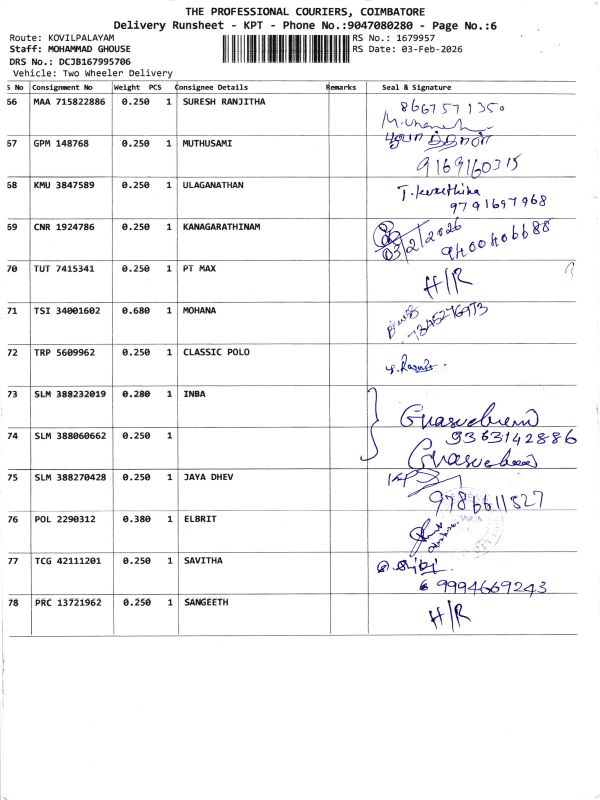 THE PROFESSIONAL COURIERS, COIMBATORE
Delivery Runsheet - KPT - Phone No.:9047080280 - Page No.:6
Route: KOVILPALAYAM RS No.: 1679957
Staff: MOHAMMAD GHOUSE RS Date: 03-Feb-2026
DRS No.: DCJB167995706
Vehicle: Two Wheeler Delivery
S No Consignment No Weight PCS Consignee Details Remarks Seal & Signature
66 MAA 715822886 0.250 1 SURESH RANJITHA 8667571350
67 GPM 148768 0.250 1 MUTHUSAMI
9169160315
68 KMU 3847589 0.250 1 ULAGANATHAN
9791697968
69 CNR 1924786 0.250 1 KANAGARATHINAM
03/2/2026 9400406688
70 TUT 7415341 0.250 1 PT MAX H/R
71 TSI 34001602 0.680 1 MOHANA
7845276973
72 TRP 5609962 0.250 1 CLASSIC POLO
73 SLM 388232019 0.280 1 INBA
9363142886
74 SLM 388060662 0.250 1
75 SLM 388270428 0.250 1 JAYA DHEV
9786611527
76 POL 2290312 0.380 1 ELBRIT
77 TCG 42111201 0.250 1 SAVITHA
9994669243
78 PRC 13721962 0.250 1 SANGEETH H/R